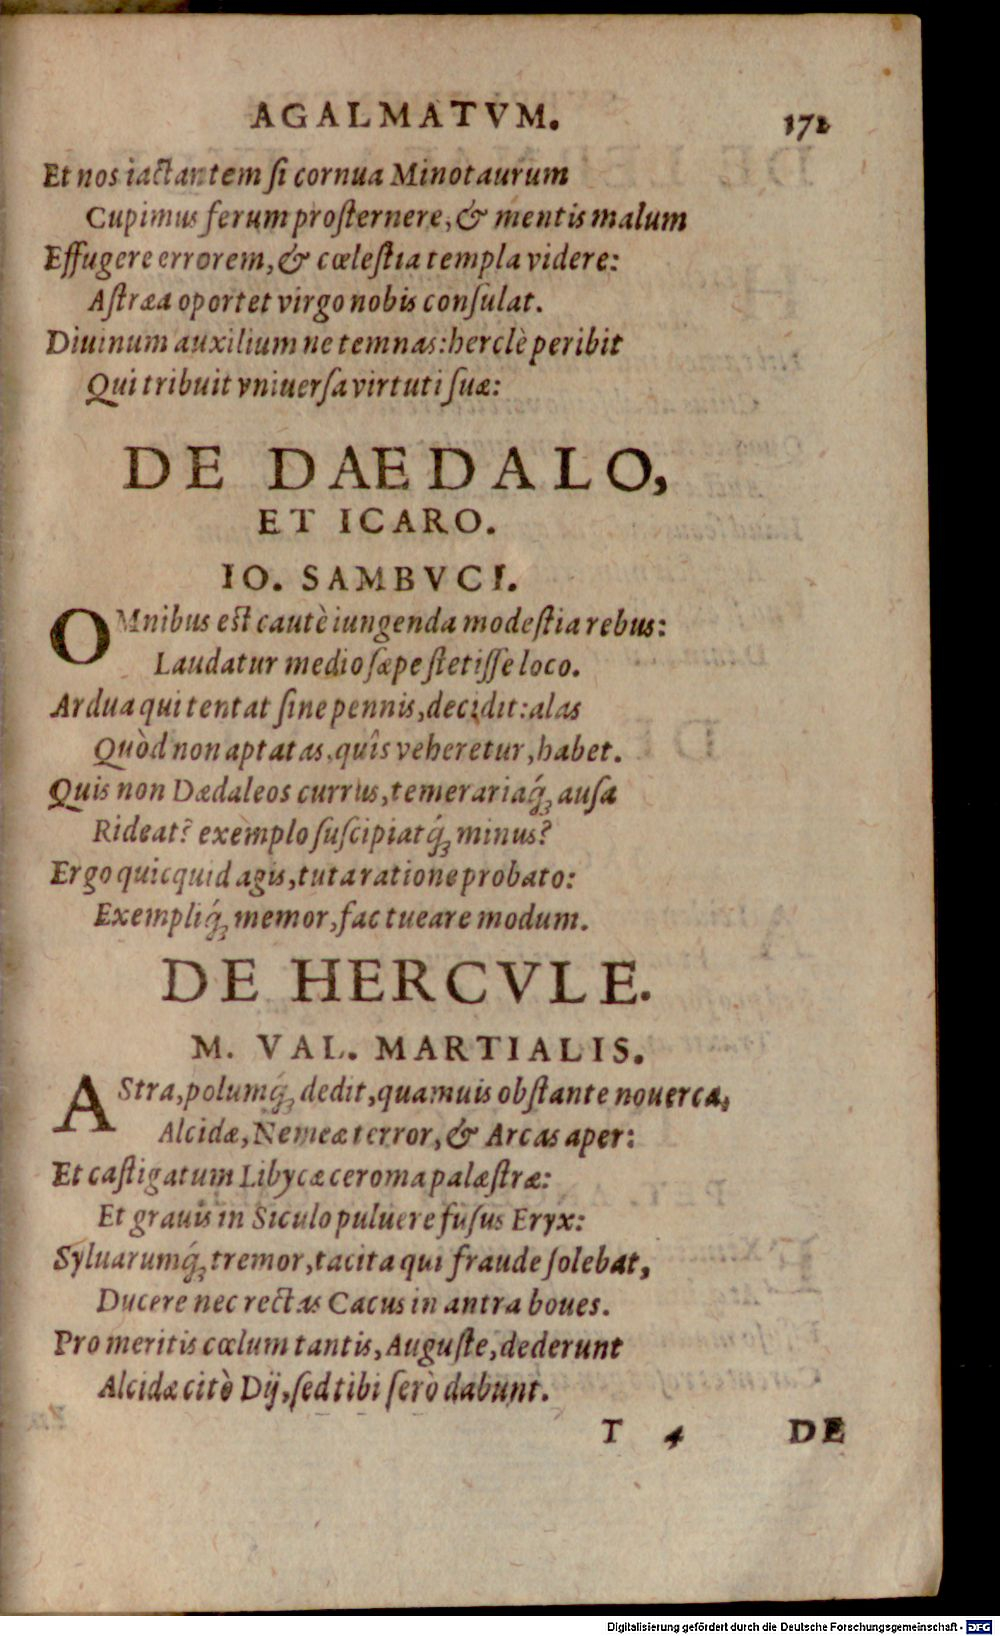 AGALMATVM. 172
Et nos iactantem ſi cornua Minotaurum
Cupimus ferum proſternere, & mentis malum
Effugere errorem, & cœleſtia templa videre:
Aſtræa oportet virgo nobis conſulat.
Diuinum auxilium ne temnas: herclè peribit
Qui tribuit vniuerſa virtuti ſuæ:
DE DAEDALO,
ET ICARO.
IO. SAMBVCI.
OMnibus est cautè iungenda modeſtia rebus:
Laudatur medio ſæpe ſtetiſſe loco.
Ardua qui tentat ſine pennis, decidit: alas
Quòd non aptatas, quîs veheretur, habet.
Quis non Dædaleos currus, temerariaq́ꝫ auſa
Rideat? exemplo ſuſcipiatq́ꝫ minus?
Ergo quicquid agis, tuta ratione probato:
Exempliq́ꝫ memor, fac tueare modum.
DE HERCVLE.
M. VAL. MARTIALIS.
AStra, polumq́ꝫ dedit, quamuis obſtante nouerca,
Alcidæ, Nemeæ terror, & Arcas aper:
Et caſtigatum Libycæ ceroma palæſtræ:
Et grauis in Siculo puluere fuſus Eryx:
Syluarumq́ꝫ tremor, tacita qui fraude ſolebat,
Ducere nec rectas Cacus in antra boues.
Pro meritis cœlum tantis, Auguſte, dederunt
Alcidæ citò Dij, ſed tibi ſerò dabunt.
T 4 DE
Digitalisierung gefördert durch die Deutsche Forschungsgemeinschaft - DFG